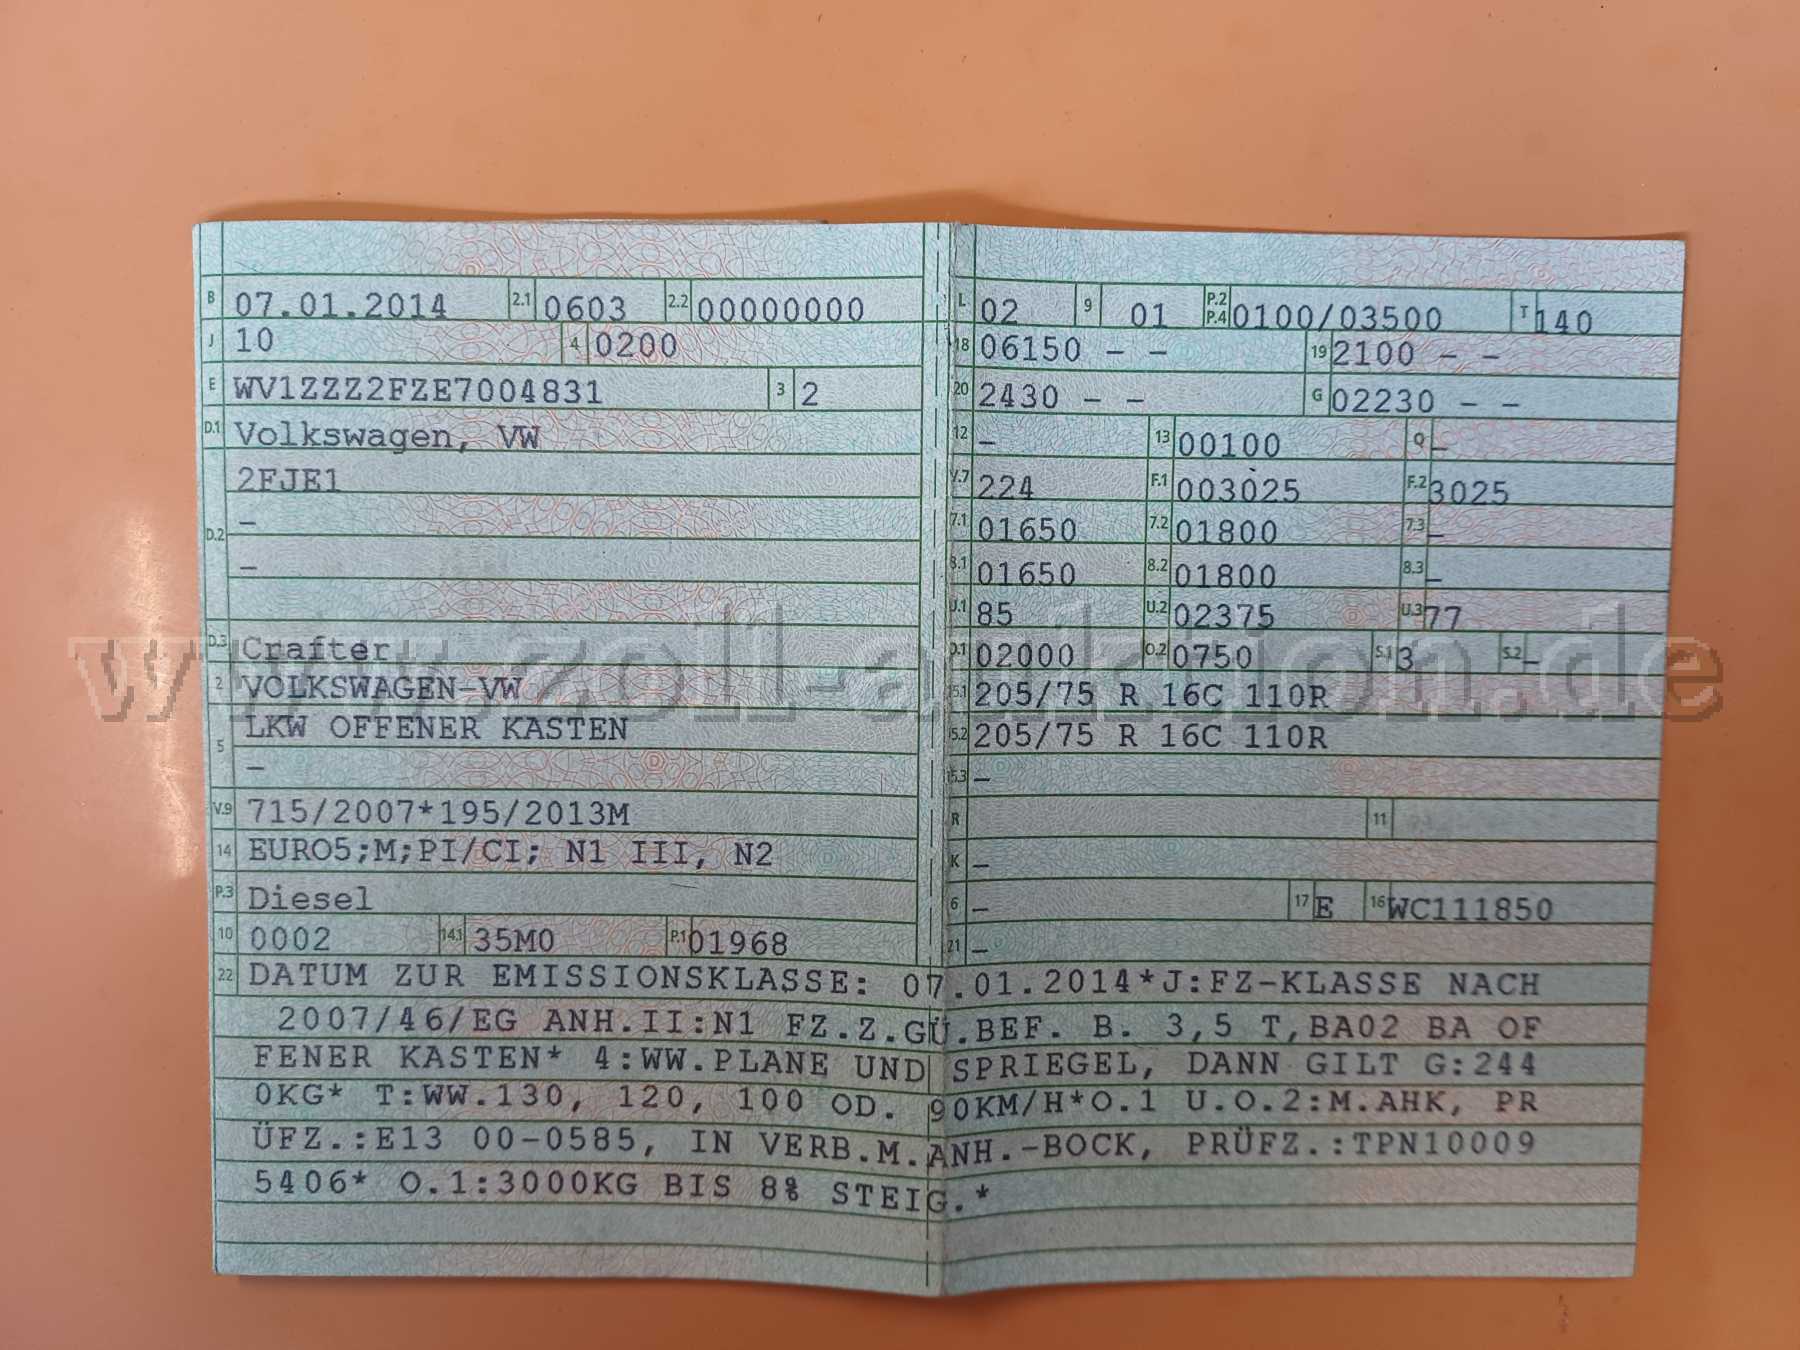 B 07.01.2014 2.1 0603 2.2 00000000
J 10 4 0200
E WV1ZZZ2FZE7004831 3 2
D.1 Volkswagen, VW
2FJE1
D.2 –
–
D.3 Crafter
2 VOLKSWAGEN-VW
LKW OFFENER KASTEN
5 –
V.9 715/2007*195/2013M
14 EURO5;M;PI/CI; N1 III, N2
P.3 Diesel
10 0002 14.1 35M0 P.1 01968
L 02 9 01 P.2 P.4 0100/03500 T 140
18 06150 – – 19 2100 – –
20 2430 – – G 02230 – –
12 – 13 00100 Q –
V.7 224 F.1 003025 F.2 3025
7.1 01650 7.2 01800 7.3 –
8.1 01650 8.2 01800 8.3 –
U.1 85 U.2 02375 U.3 77
O.1 02000 O.2 0750 S.1 3 S.2 –
15.1 205/75 R 16C 110R
15.2 205/75 R 16C 110R
15.3 –
R 11
K –
6 – 17 E 16 WC111850
21 –
22 DATUM ZUR EMISSIONSKLASSE: 07.01.2014*J:FZ-KLASSE NACH
2007/46/EG ANH.II:N1 FZ.Z.GÜ.BEF. B. 3,5 T,BA02 BA OF
FENER KASTEN* 4:WW.PLANE UND SPRIEGEL, DANN GILT G:244
0KG* T:WW.130, 120, 100 OD. 90KM/H*O.1 U.O.2:M.AHK, PR
ÜFZ.:E13 00-0585, IN VERB.M.ANH.-BOCK, PRÜFZ.:TPN10009
5406* O.1:3000KG BIS 8% STEIG.*
www.zoll-auktion.de